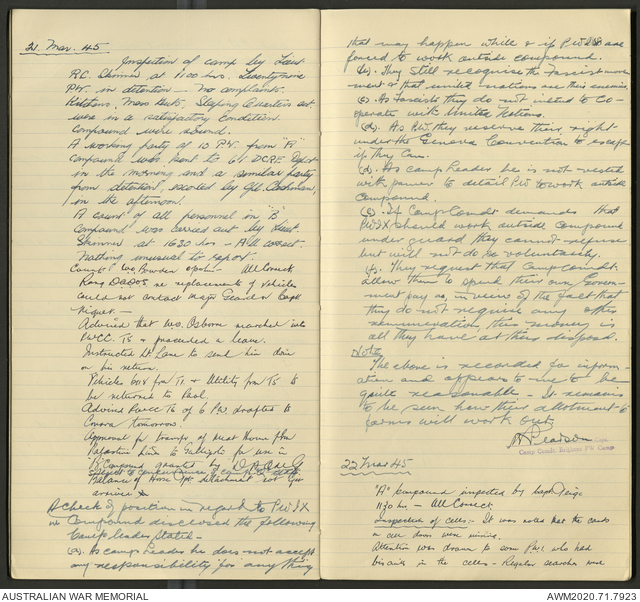 21 Mar. 45.
Inspection of camp by Lieut
R.C. Skinner at 1100 hrs. Twentynine
PW. in detention - No complaints.
Kitchens, Mess Huts, Sleeping Quarters etc.
were in a satisfactory condition.
Compound were sound.
A working party of 10 PW. from "A"
Compound was sent to 61 DCRE Depot
in the morning and a similar party
from detention, escorted by Gd.
in the afternoon.
A count of all personnel in "B"
Compound was carried out by Lieut.
Skinner at 1630 hrs - All Correct.
Nothing unusual to report.
Count W.O. Bowden All Correct
Rang DADOS re replacements of vehicles
could not contact Major or Capt
Advised that W.O. Osborn marched into
PWCC. T3 & proceeded on leave.
Instructed Lt. Lane to send him
on his return.
Vehicles for T1 & Utility for T3 to
be returned to Pool.
Advised PWCC T3 of 6 PW drafted to
Cowra tomorrow.
Approval for transfer of
to for use in
B Compound granted by
Balance of detachment not
A check of position in regard to PWIX
in Compound disclosed the following
Camp leader stated -
(a). As camp leader he does not accept
any responsibility for anything
that may happen while & if PWIX are
forced to work outside compound.
(b). They still recognise the fascist move
ment & that united nations are their enemies.
(c). As fascists they do not intend to Co-
operate with United Nations.
(d). As P.W. they reserve their right
under the Geneva Convention to escape
if they can.
(d). As camp leader he is not vested
with power to detail PW to work outside
compound.
(e). If Camp Comdt demands that
PWIX should work outside compound
under guard they cannot refuse
but will not do so voluntarily.
(f). They request that Camp Comdt.
allow them to spend their own Govern-
ment pay as, in view of the fact that
they do not require any other
remuneration, this money is
all they have at their disposal.
Note
The above is recorded for inform-
ation and appears to me to be
quite reasonable - It remains
to be seen how their allotment to
farms will work out.
Pearson
Capt.
22 Mar 45
"A" compound inspected by Capt
1130 hrs - All Correct
Inspection of cells:- It was noted that the cards
on cell doors were
Attention was drawn to some PW. who had
biscuits in the cells - Regular searches
AUSTRALIAN WAR MEMORIAL
AWM2020.71.7923